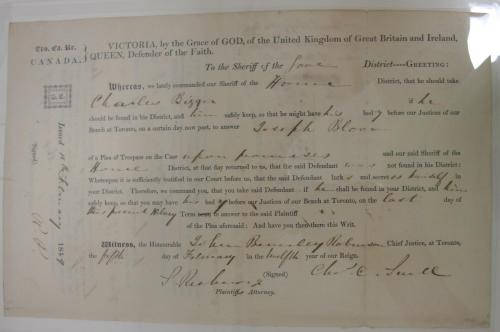 VICTORIA, by the Grace of GOD, of the United Kingdom of Great Britain and Ireland,
CANADA, QUEEN, Defender of the Faith.
To the Sheriff of the Gore District—GREETING:
WHEREAS, we lately commanded our Sheriff of the Home District, that he should take
Charles Bigger if he
should be found in his District, and him safely keep, so that he might have his body before our Justices of our
Bench at Toronto, on a certain day now past, to answer Joseph Bloor
of a Plea of Trespass on the Case upon promises and our said Sheriff of the
Home District, at that day returned to us, that the said Defendant was not found in his District:
Whereupon it is sufficiently notified in our Court before us, that the said Defendant lurks and secretes himself in
your District. Therefore, we command you, that you take said Defendant if he shall be found in your District, and him
safely keep, so that you may have his body before our Justices of our Bench at Toronto, on the last day of
this present Hilary Term to answer to the said Plaintiff
of the Plea aforesaid: And have you then there this Writ.
WITNESS, the Honourable John Beverley Robinson Chief Justice, at Toronto,
the fifth day of February in the twelfth year of our Reign.
(Signed) Chas. C. Small
Plaintiffs Attorney.
Issued
February 1849
Signed,